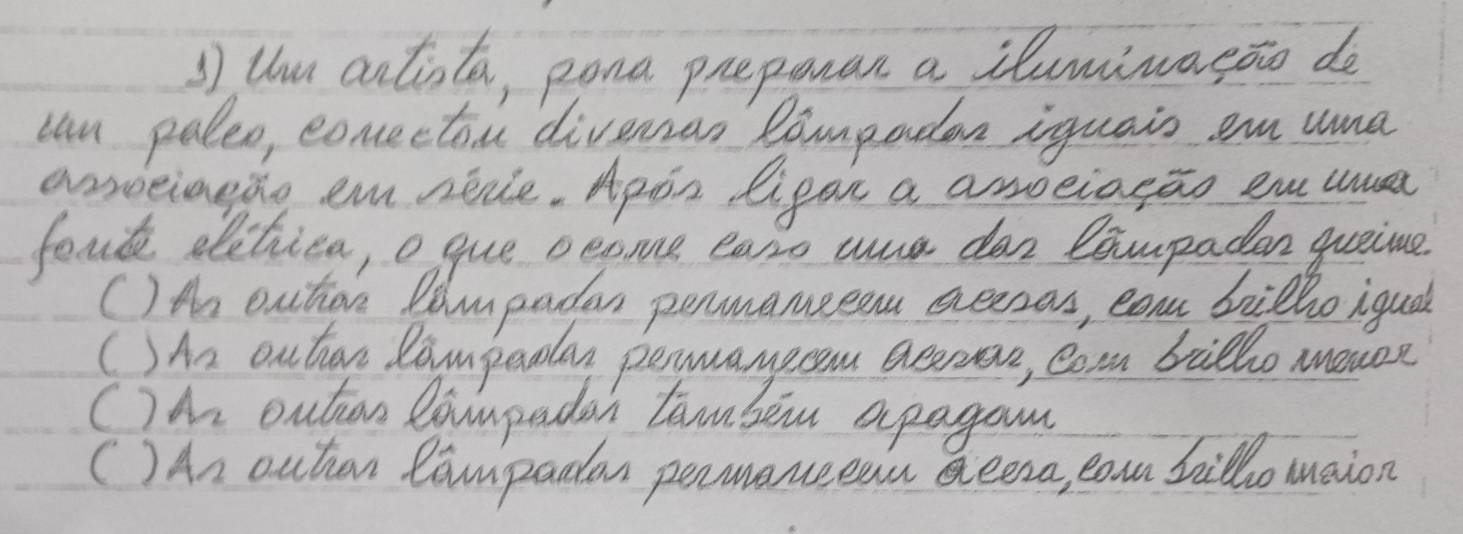 1) Um artista, para preparar a iluminação de
um palco, conectou diversas lâmpadas iguais em uma
associação em série. Após ligar a associação em uma
fonte elétrica, o que ocorre caso uma das lâmpadas queime.
( ) As outras lâmpadas permanecem acesas, com brilho igual
( ) As outras lâmpadas permanecem acesas, com brilho menor
( ) As outras lâmpadas também apagam
( ) As outras lâmpadas permanecem acesa, com brilho maior